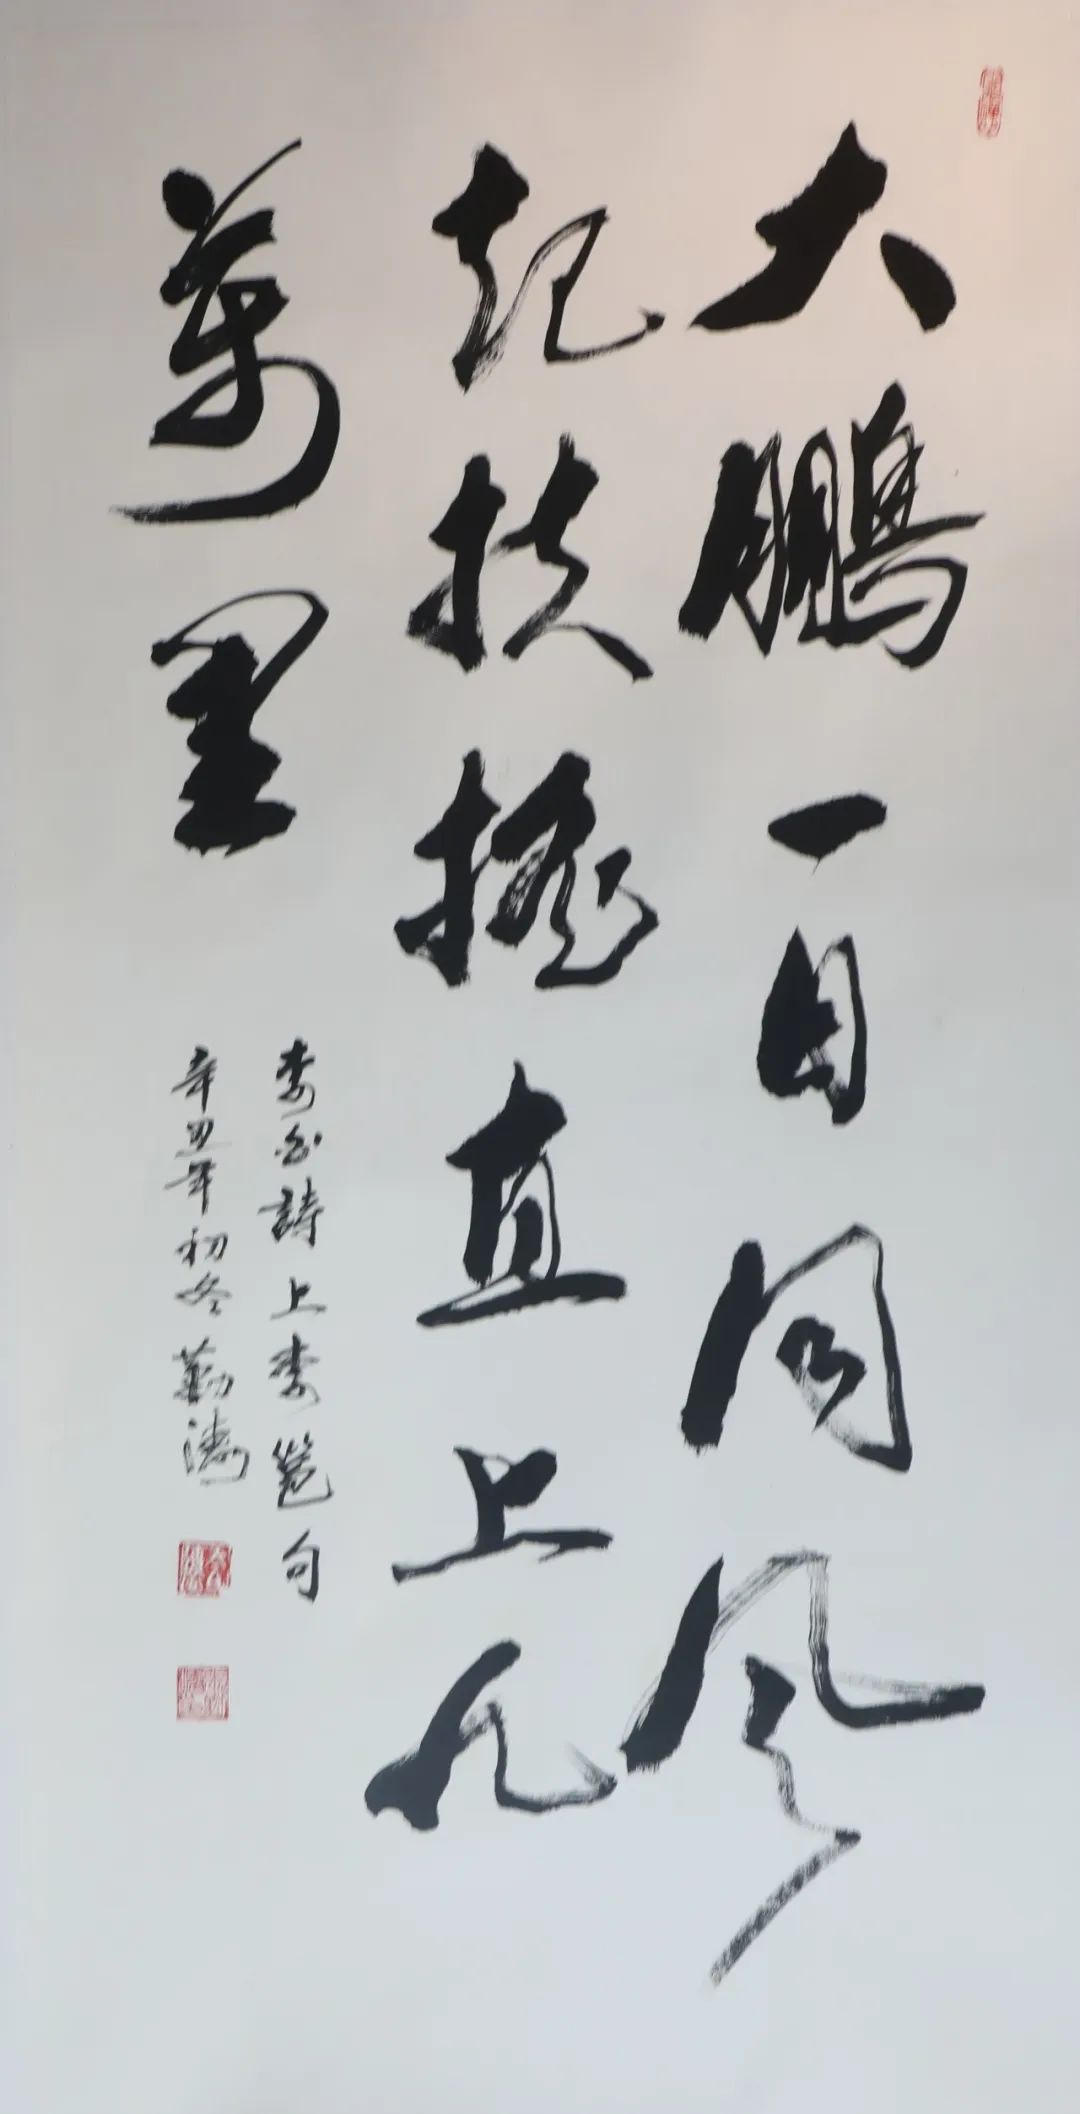 大鵬一日同风
起扶摇直上九
萬里
李白詩上李邕句
辛丑年初冬勤涛